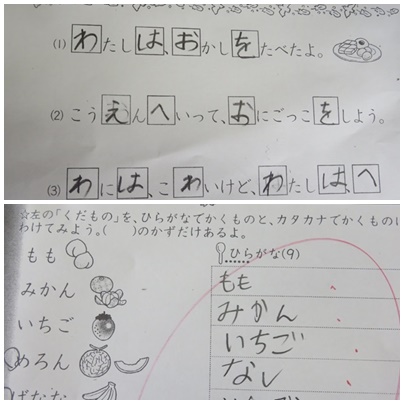 (1) わたしは、おかしをたべたよ。
(2) こうえんへいって、おにごっこをしよう。
(3) わには、こわいけど、わたしは、へ
☆左の「くだもの」を、ひらがなでかくものと、カタカナでかくものに
わけてみよう。(　)のかずだけあるよ。
もも
みかん
いちご
めろん
ばなな
ひらがな(9)
もも
みかん
いちご
なし